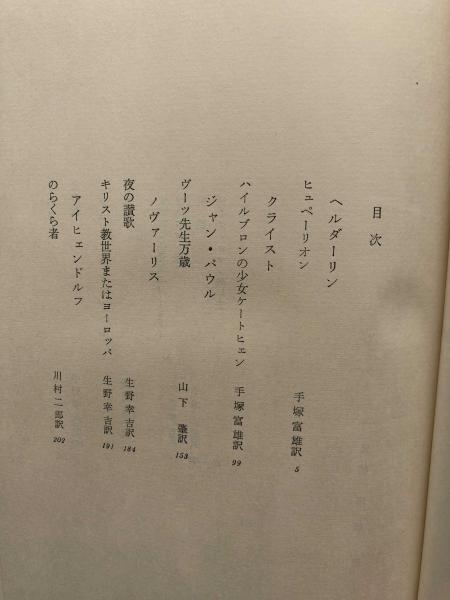 目次
ヘルダーリン
ヒュペーリオン 手塚富雄訳 5
クライスト
ハイルブロンの少女ケートヒェン 手塚富雄訳 99
ジャン・パウル
ヴーツ先生万歳 山下肇訳 153
ノヴァーリス
夜の讃歌 生野幸吉訳 184
キリスト教世界またはヨーロッパ 生野幸吉訳 191
アイヒェンドルフ
のらくら者 川村二郎訳 202